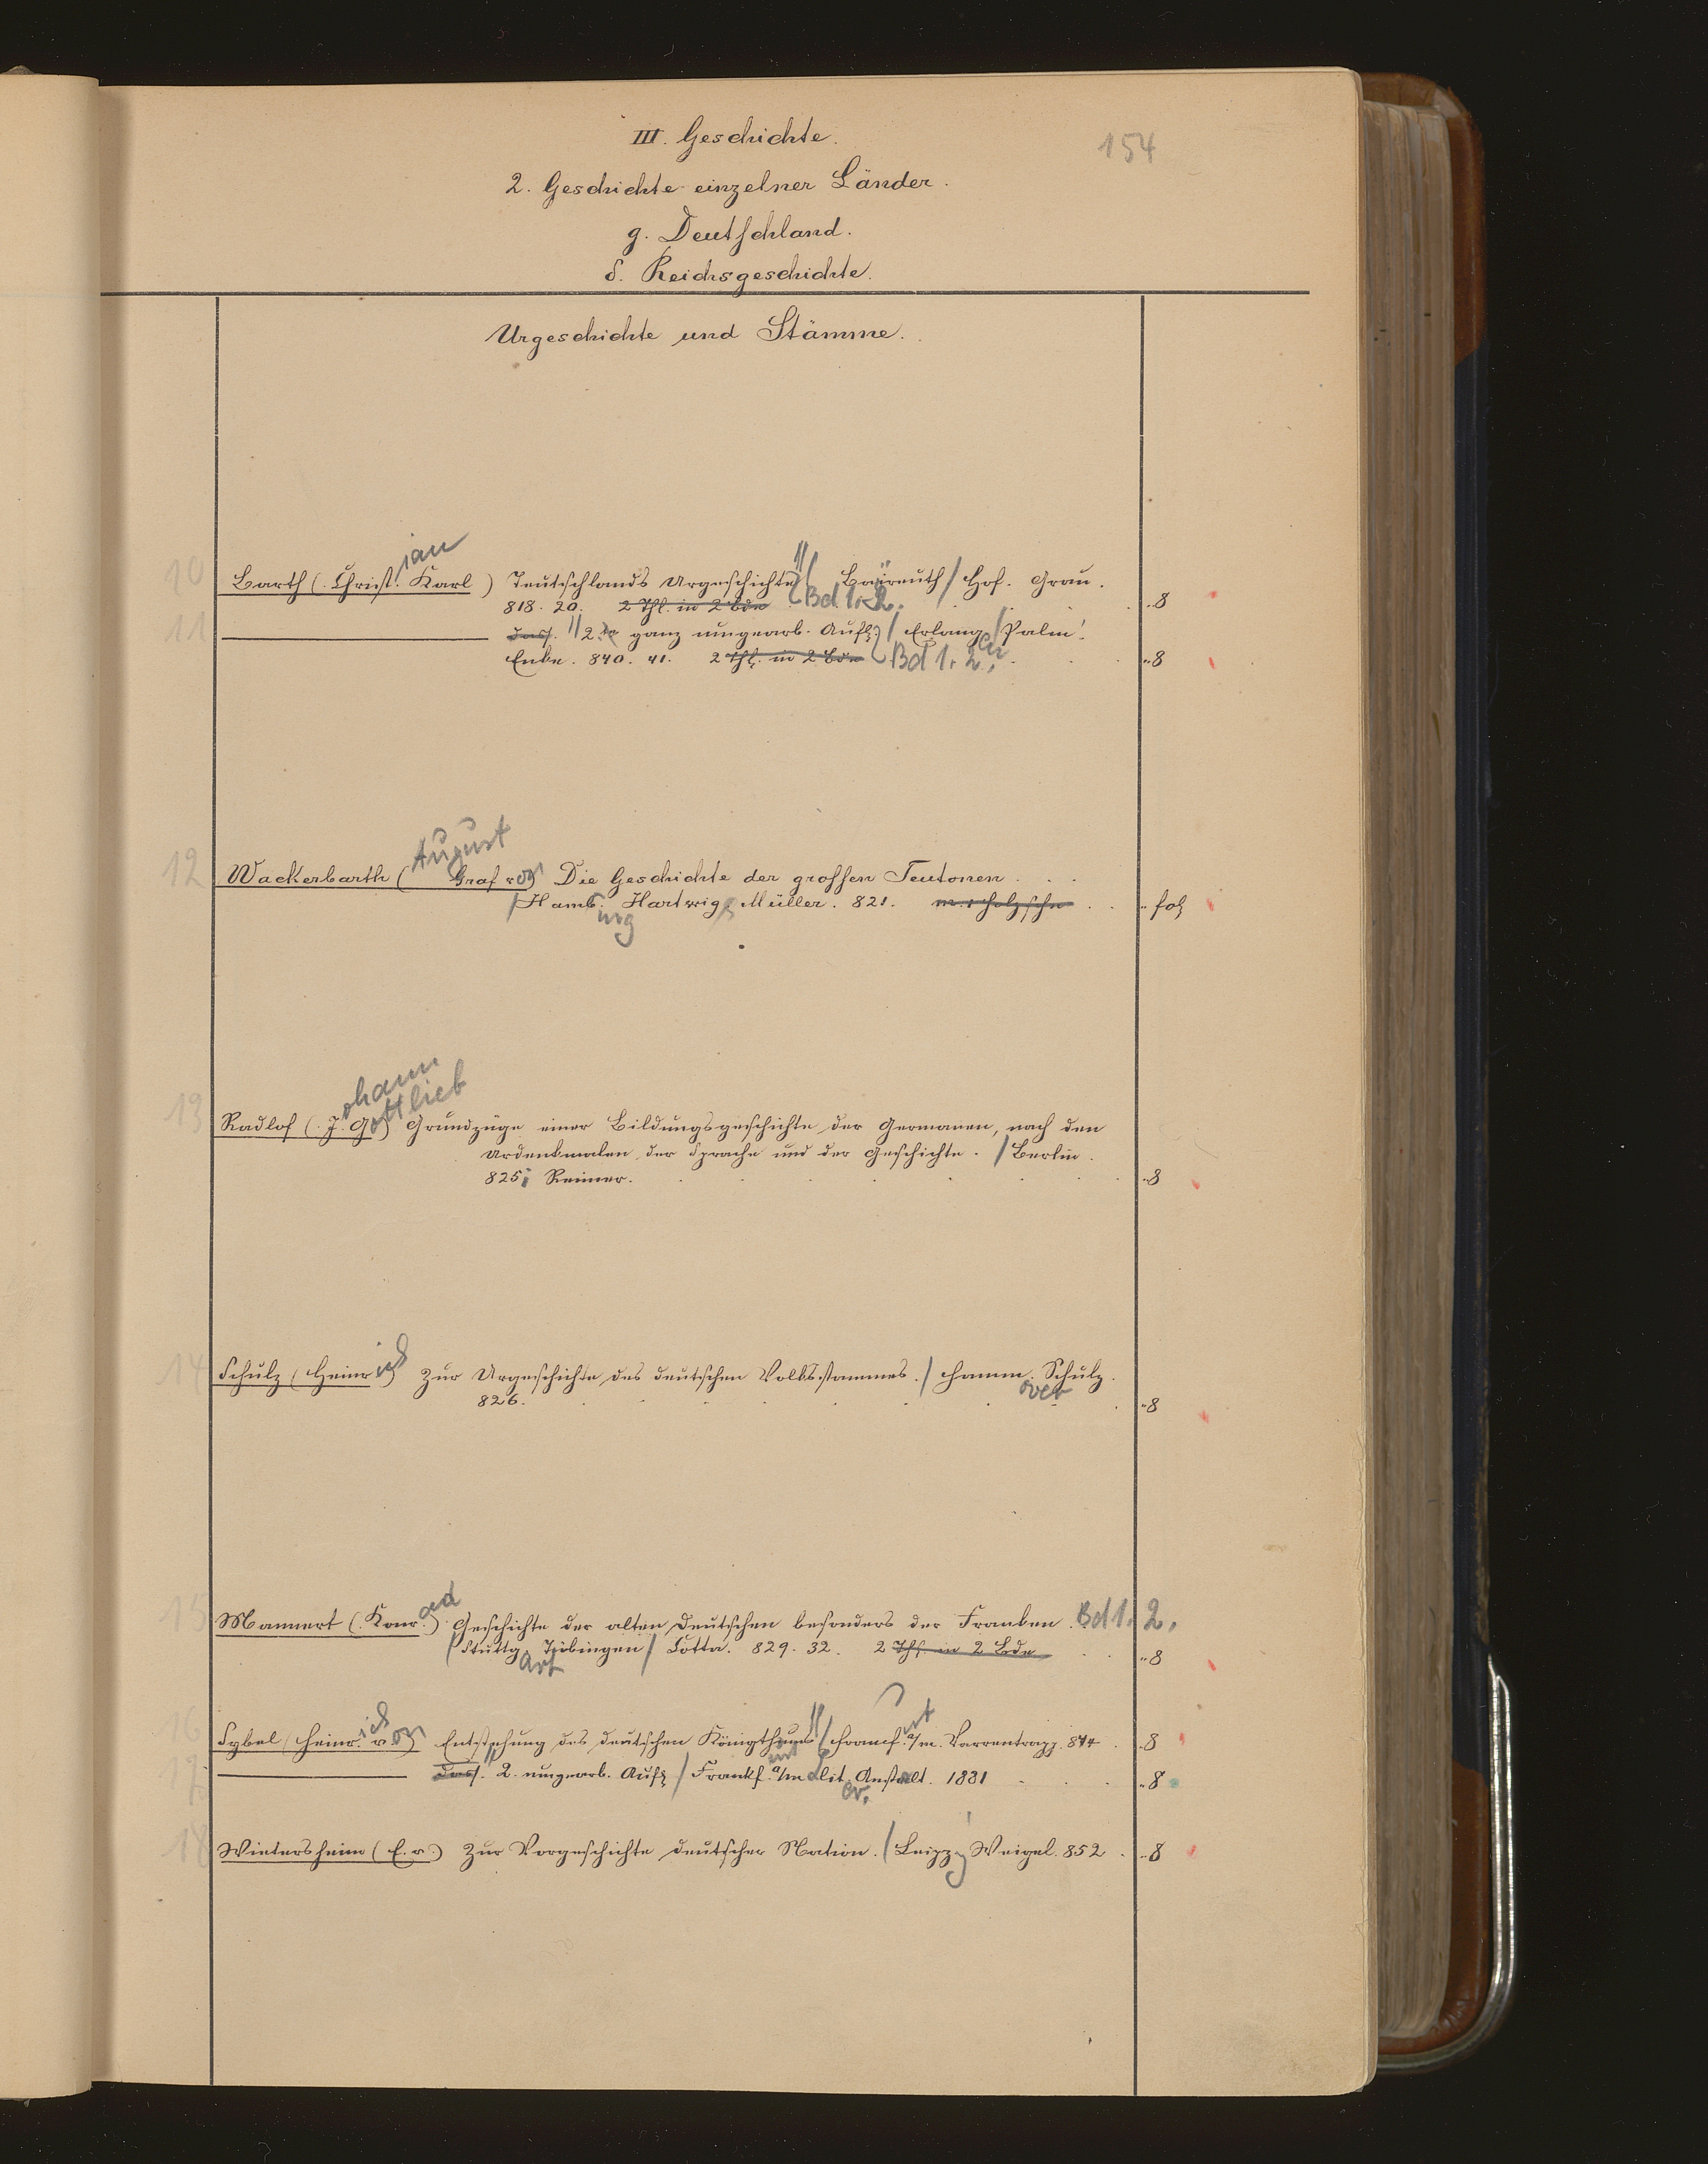 III. Geschichte.
154
2. Geschichte einzelner Länder.
g. Deutschland.
δ. Reichsgeschichte.
Urgeschichte und Stämme.
10 Barth (Christ.ian Karl) Teutschlands Urgeschichte // / Baireuth / Hof. Grau.
818. 20. 2 Thl. in 2 Bde Bd 1-2. 8
11 dass. // 2te ganz umgearb. Aufl. / Erlang.en / Palm.
Enke. 840. 41. 2 Thl. in 2 Bde Bd 1. 2. 8
12 Wackerbarth (August Graf von) Die Geschichte der grossen Teutonen
/ Hamb.urg Hartwig & Müller. 821. m. Holzschn fol
13 Radlof (Johann Gottlieb) Grundzüge einer Bildungsgeschichte der Germanen, nach den
Urdenkmalen der Sprache und der Geschichte. / Berlin.
825; Reimer. 8
14 Schulz (Heinrich) Zur Urgeschichte des deutschen Volksstammes. / Hamm. Schulz.
826. 8
15 Mannert (Konrad) Geschichte der alten Deutschen besonders der Franken. Bd 1. 2.
/ Stuttgart Tübingen / Cotta. 829. 32. 2 Thl. in 2 Bde 8
16 Sybel (Heinrich von) Entstehung des deutschen Königthums // / Francf.urt a/m. Varrentrapp. 844 8
17 dass. // 2. umgearb. Aufl / Frankf.urt a/m Liter. Anstalt. 1881 8
18 Wietersheim (E. v.) Zur Vorgeschichte deutscher Nation. / Leipzig Weigel. 852 8